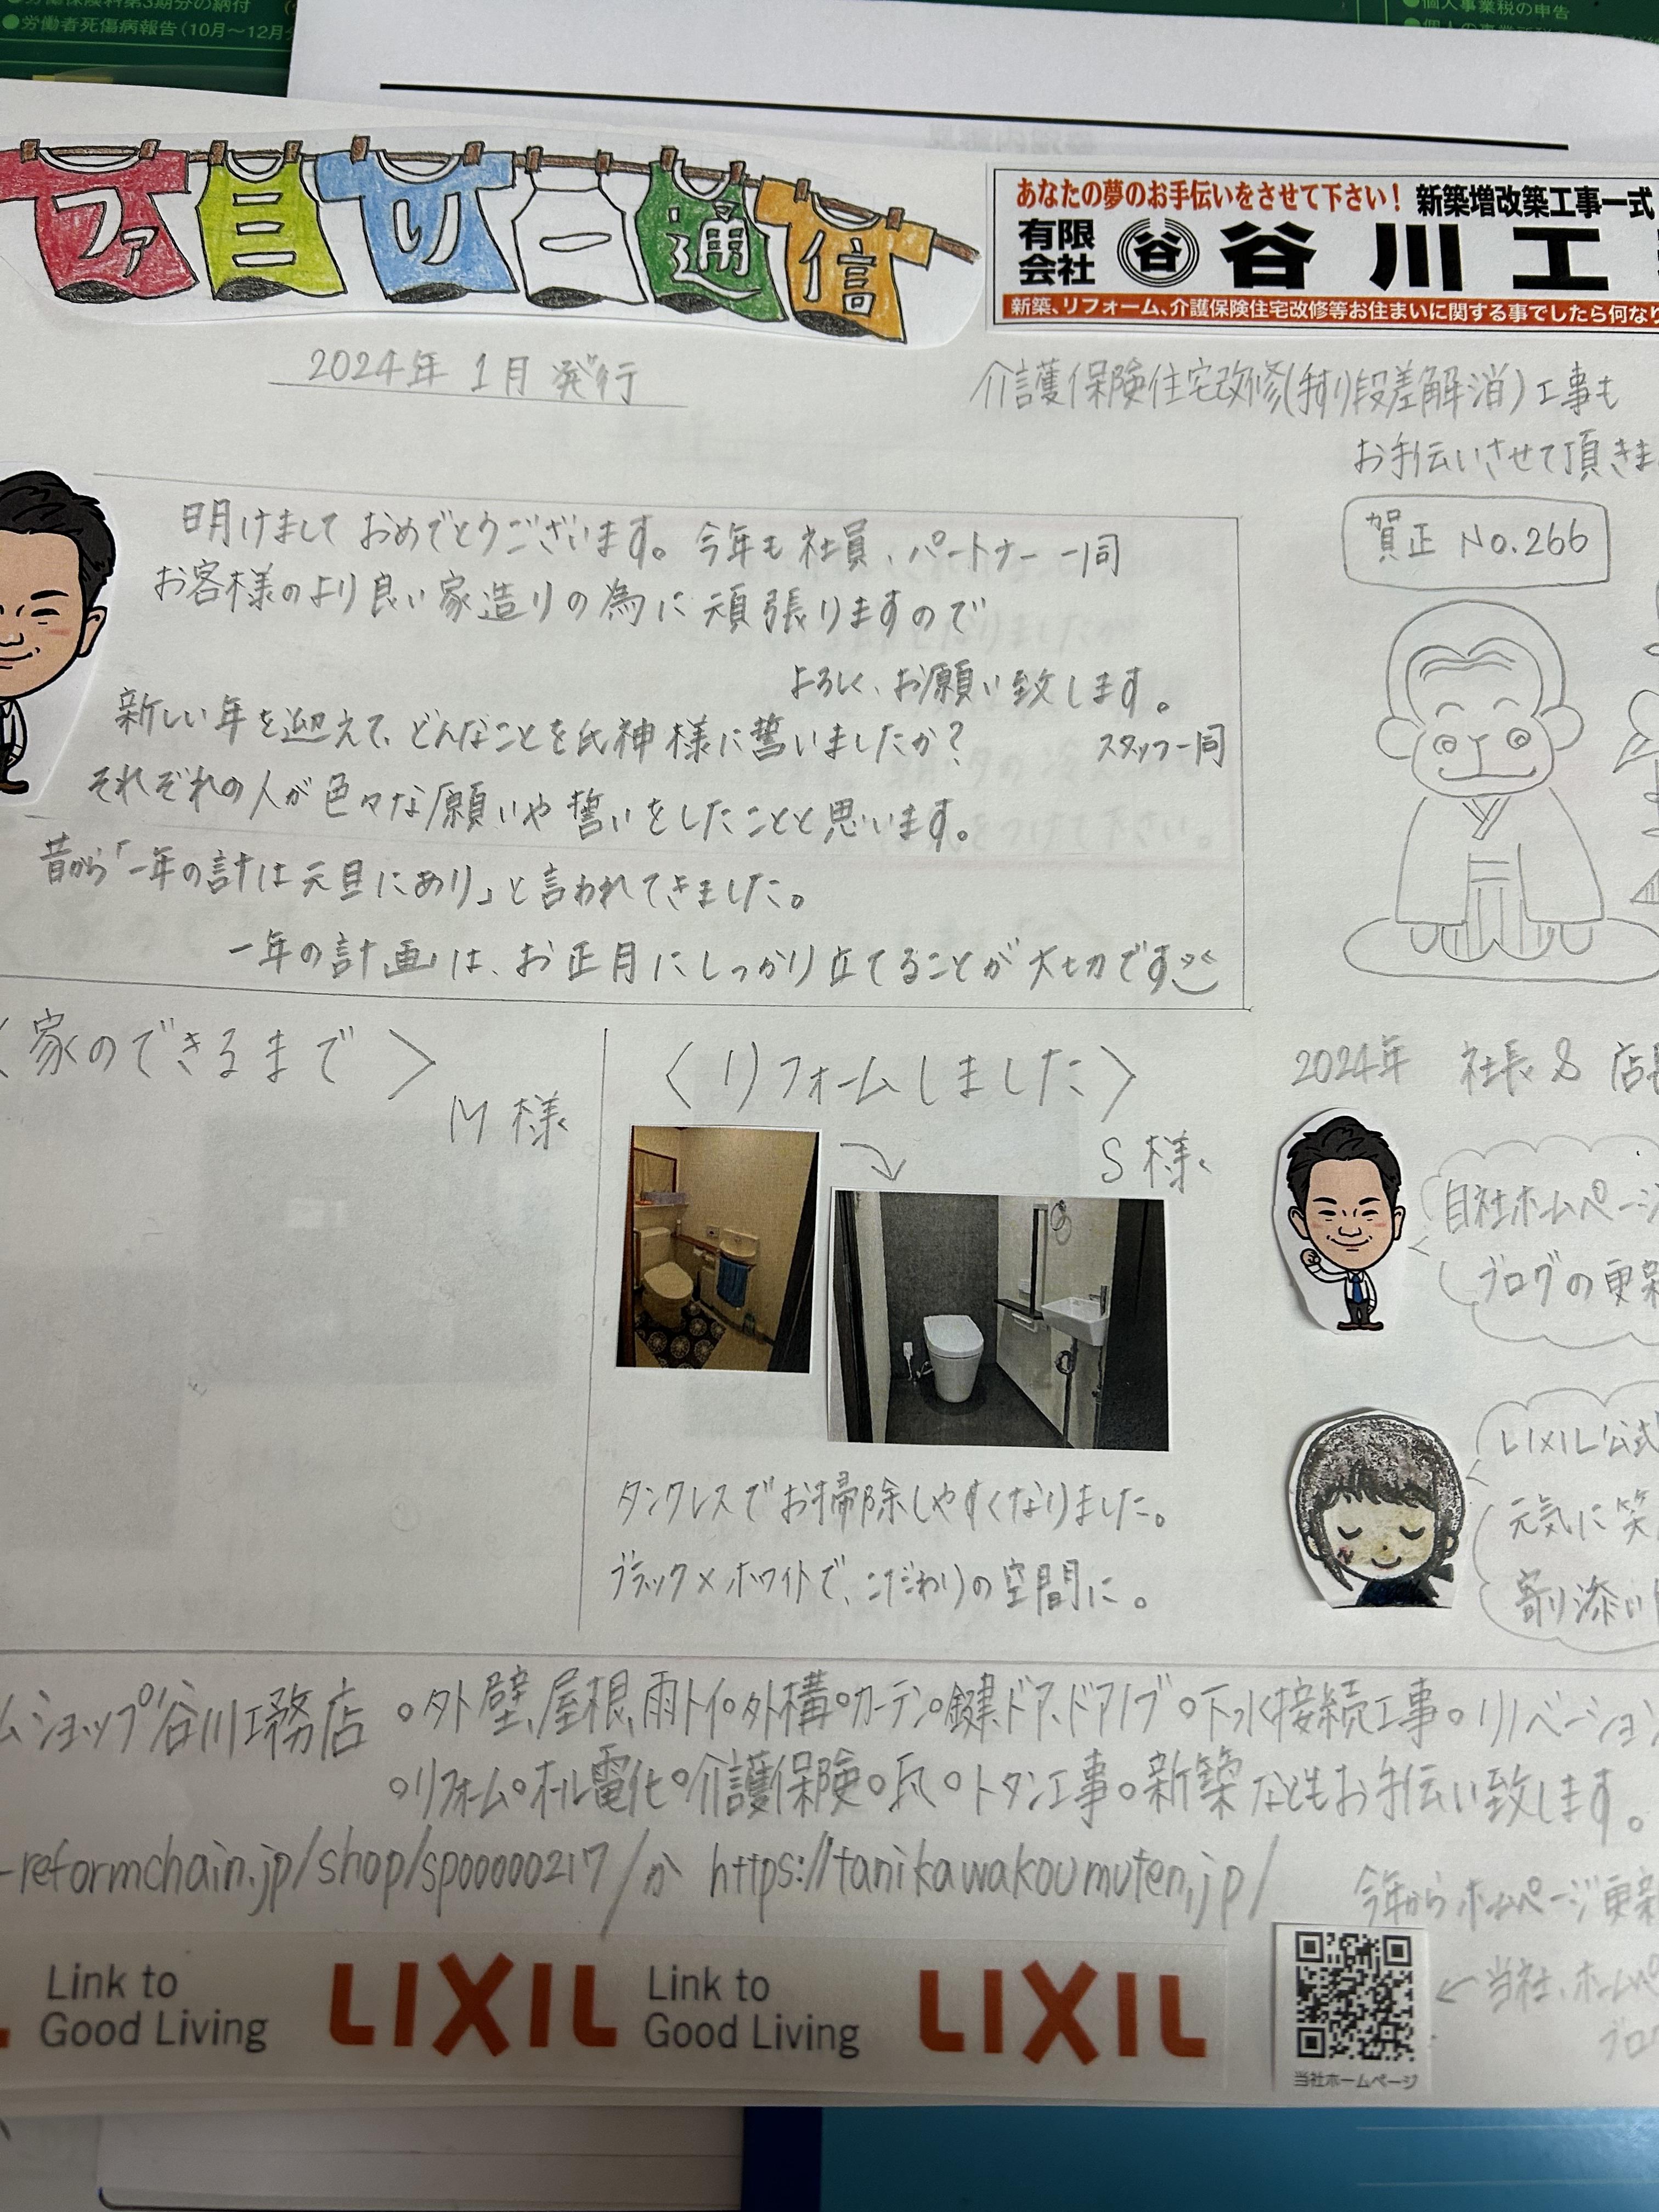 労働保険料第3期分の納付
●労働者死傷病報告(10月～12月
●個人事業税の申告
ファミリー通信
あなたの夢のお手伝いをさせて下さい! 新築増改築工事一式
有限会社 谷 谷川工
新築、リフォーム、介護保険住宅改修等お住まいに関する事でしたら何なり
2024年 1月 発行
介護保険住宅改修(手すり段差解消)工事も
お手伝いさせて頂きま
賀正 No.266
明けまして おめでとうございます。今年も 社員、パートナー 一同
お客様のより良い家造りの為に頑張りますので
よろしく、お願い致します。
スタッフ一同
新しい年を迎えて、どんなことを氏神様に誓いましたか?
それぞれの人が色々な願いや誓いをしたことと思います。
昔から「一年の計は元旦にあり」と言われてきました。
一年の計画は、お正月にしっかり立てることが大切です
〈家のできるまで〉
M様
〈リフォームしました〉
S様
タンクレスでお掃除しやすくなりました。
ブラック×ホワイトで、こだわりの空間に。
2024年 社長 & 店
自社ホームページ
ブログの更新
LIXIL公式
元気に笑
寄り添い
ムショップ谷川工務店
○外壁、屋根、雨トイ○外構○カーテン○鍵、ドア、ドアノブ○下水接続工事○リノベーション
○リフォーム○オール電化○介護保険○瓦○トタン工事○新築などもお手伝い致します。
-reformchain.jp/shop/sp00000217/か https://tanikawakoumuten.jp/
今年からホームページ更新
Link to Good Living LIXIL Link to Good Living LIXIL
←当社、ホームペ
ブロ
当社ホームページ